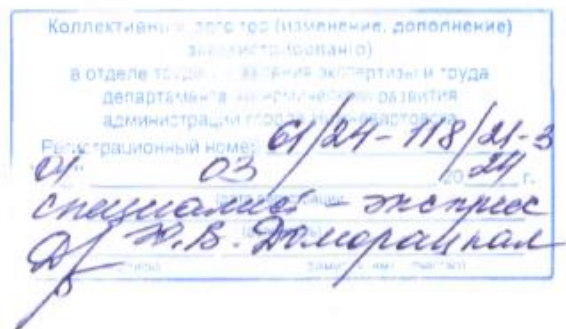 Коллективный договор (изменение, дополнение)
зарегистрирован(о)
в отделе труда управления экспертизы и труда
департамента экономического развития
администрации города Нижневартовска
Регистрационный номер 61/24-118/21-3
"01" 03 2024 г.
специалист-эксперт
Ю.В. Доморацкая